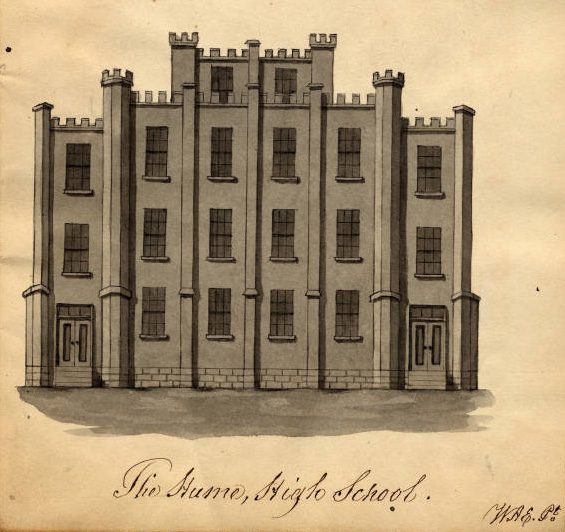 The Hume, High School.
W.A.E. Pt.